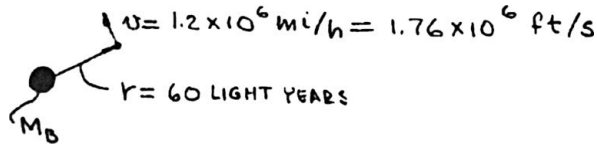 v = 1.2 × 10⁶ mi/h = 1.76 × 10⁶ ft/s
r = 60 LIGHT YEARS
M_B